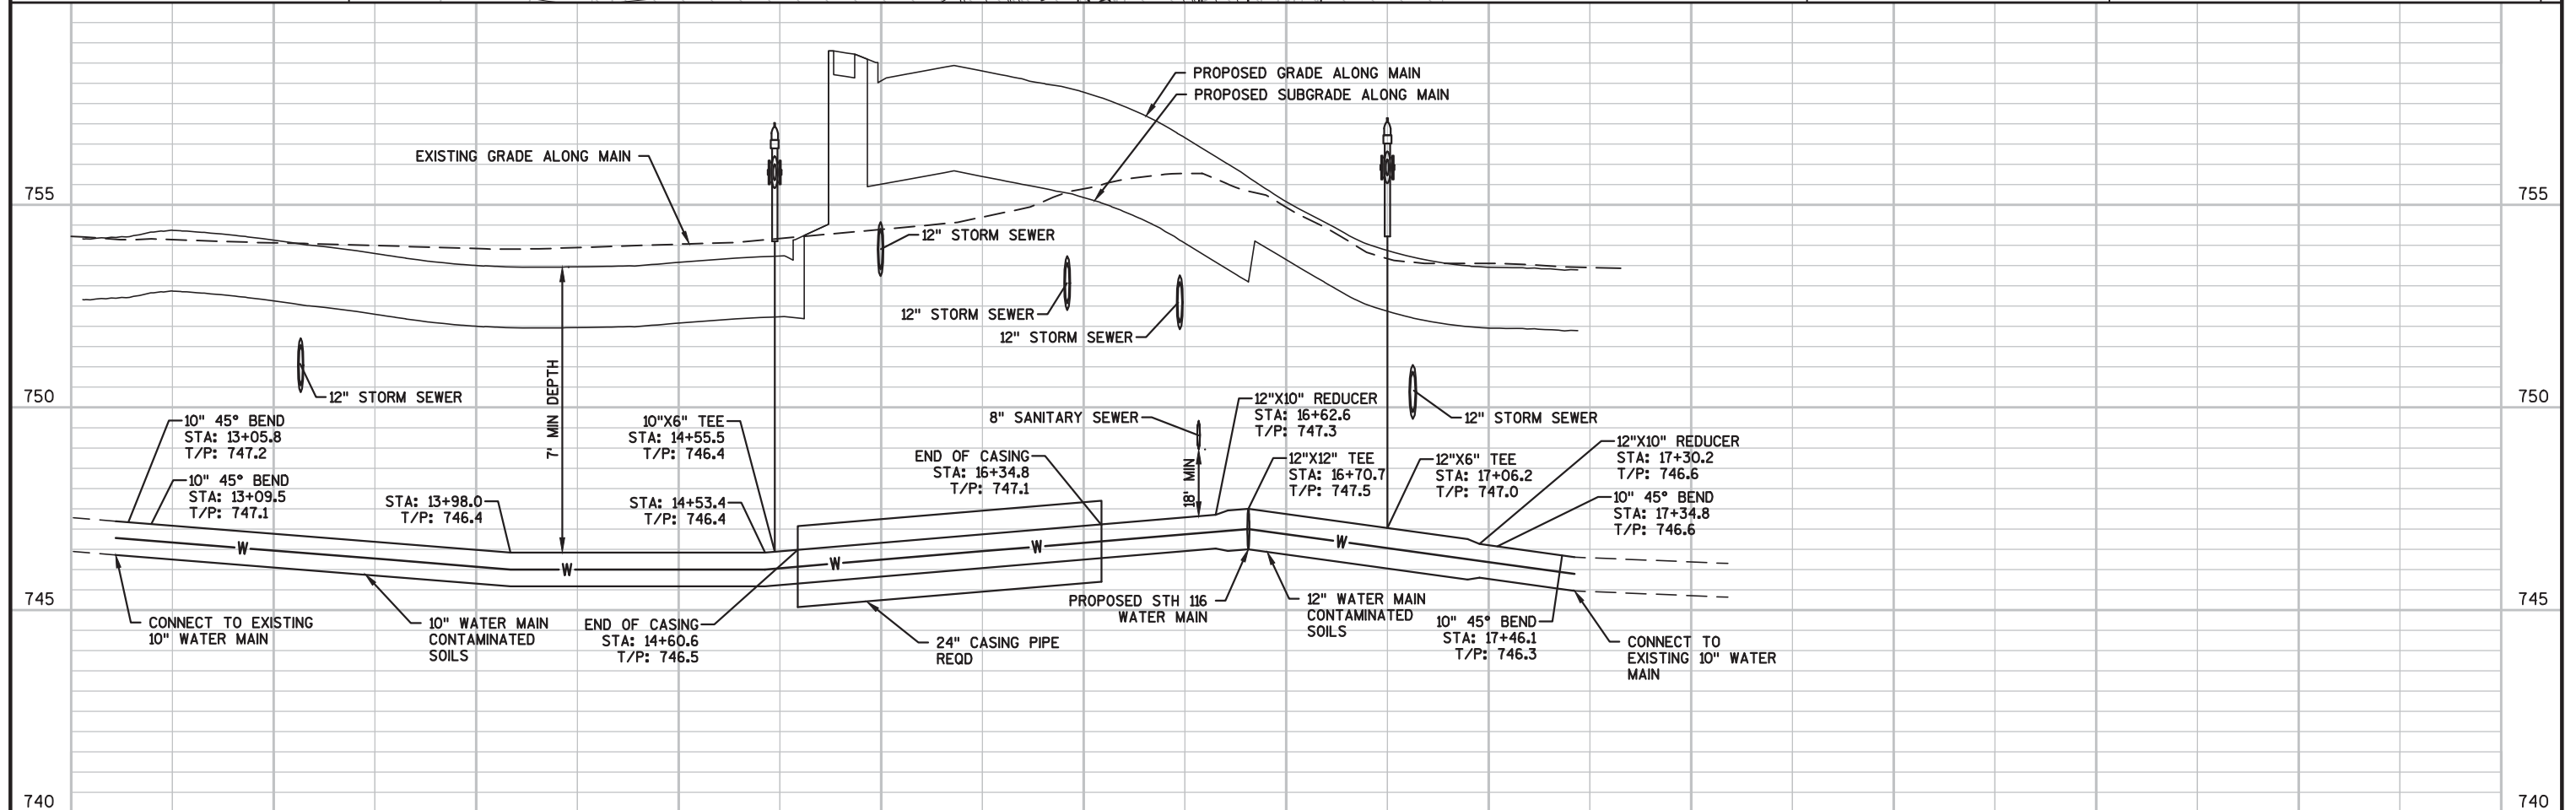 PROPOSED GRADE ALONG MAIN
PROPOSED SUBGRADE ALONG MAIN
EXISTING GRADE ALONG MAIN
755
755
12" STORM SEWER
12" STORM SEWER
12" STORM SEWER
12" STORM SEWER
7' MIN DEPTH
750
750
10" 45° BEND
STA: 13+05.8
T/P: 747.2
10" 45° BEND
STA: 13+09.5
T/P: 747.1
STA: 13+98.0
T/P: 746.4
10"X6" TEE
STA: 14+55.5
T/P: 746.4
STA: 14+53.4
T/P: 746.4
8" SANITARY SEWER
END OF CASING
STA: 16+34.8
T/P: 747.1
18" MIN
12"X10" REDUCER
STA: 16+62.6
T/P: 747.3
12"X12" TEE
STA: 16+70.7
T/P: 747.5
12" STORM SEWER
12"X6" TEE
STA: 17+06.2
T/P: 747.0
12"X10" REDUCER
STA: 17+30.2
T/P: 746.6
10" 45° BEND
STA: 17+34.8
T/P: 746.6
W
W
W
W
W
745
745
CONNECT TO EXISTING
10" WATER MAIN
10" WATER MAIN
CONTAMINATED
SOILS
END OF CASING
STA: 14+60.6
T/P: 746.5
24" CASING PIPE
REQD
PROPOSED STH 116
WATER MAIN
12" WATER MAIN
CONTAMINATED
SOILS
10" 45° BEND
STA: 17+46.1
T/P: 746.3
CONNECT TO
EXISTING 10" WATER
MAIN
740
740